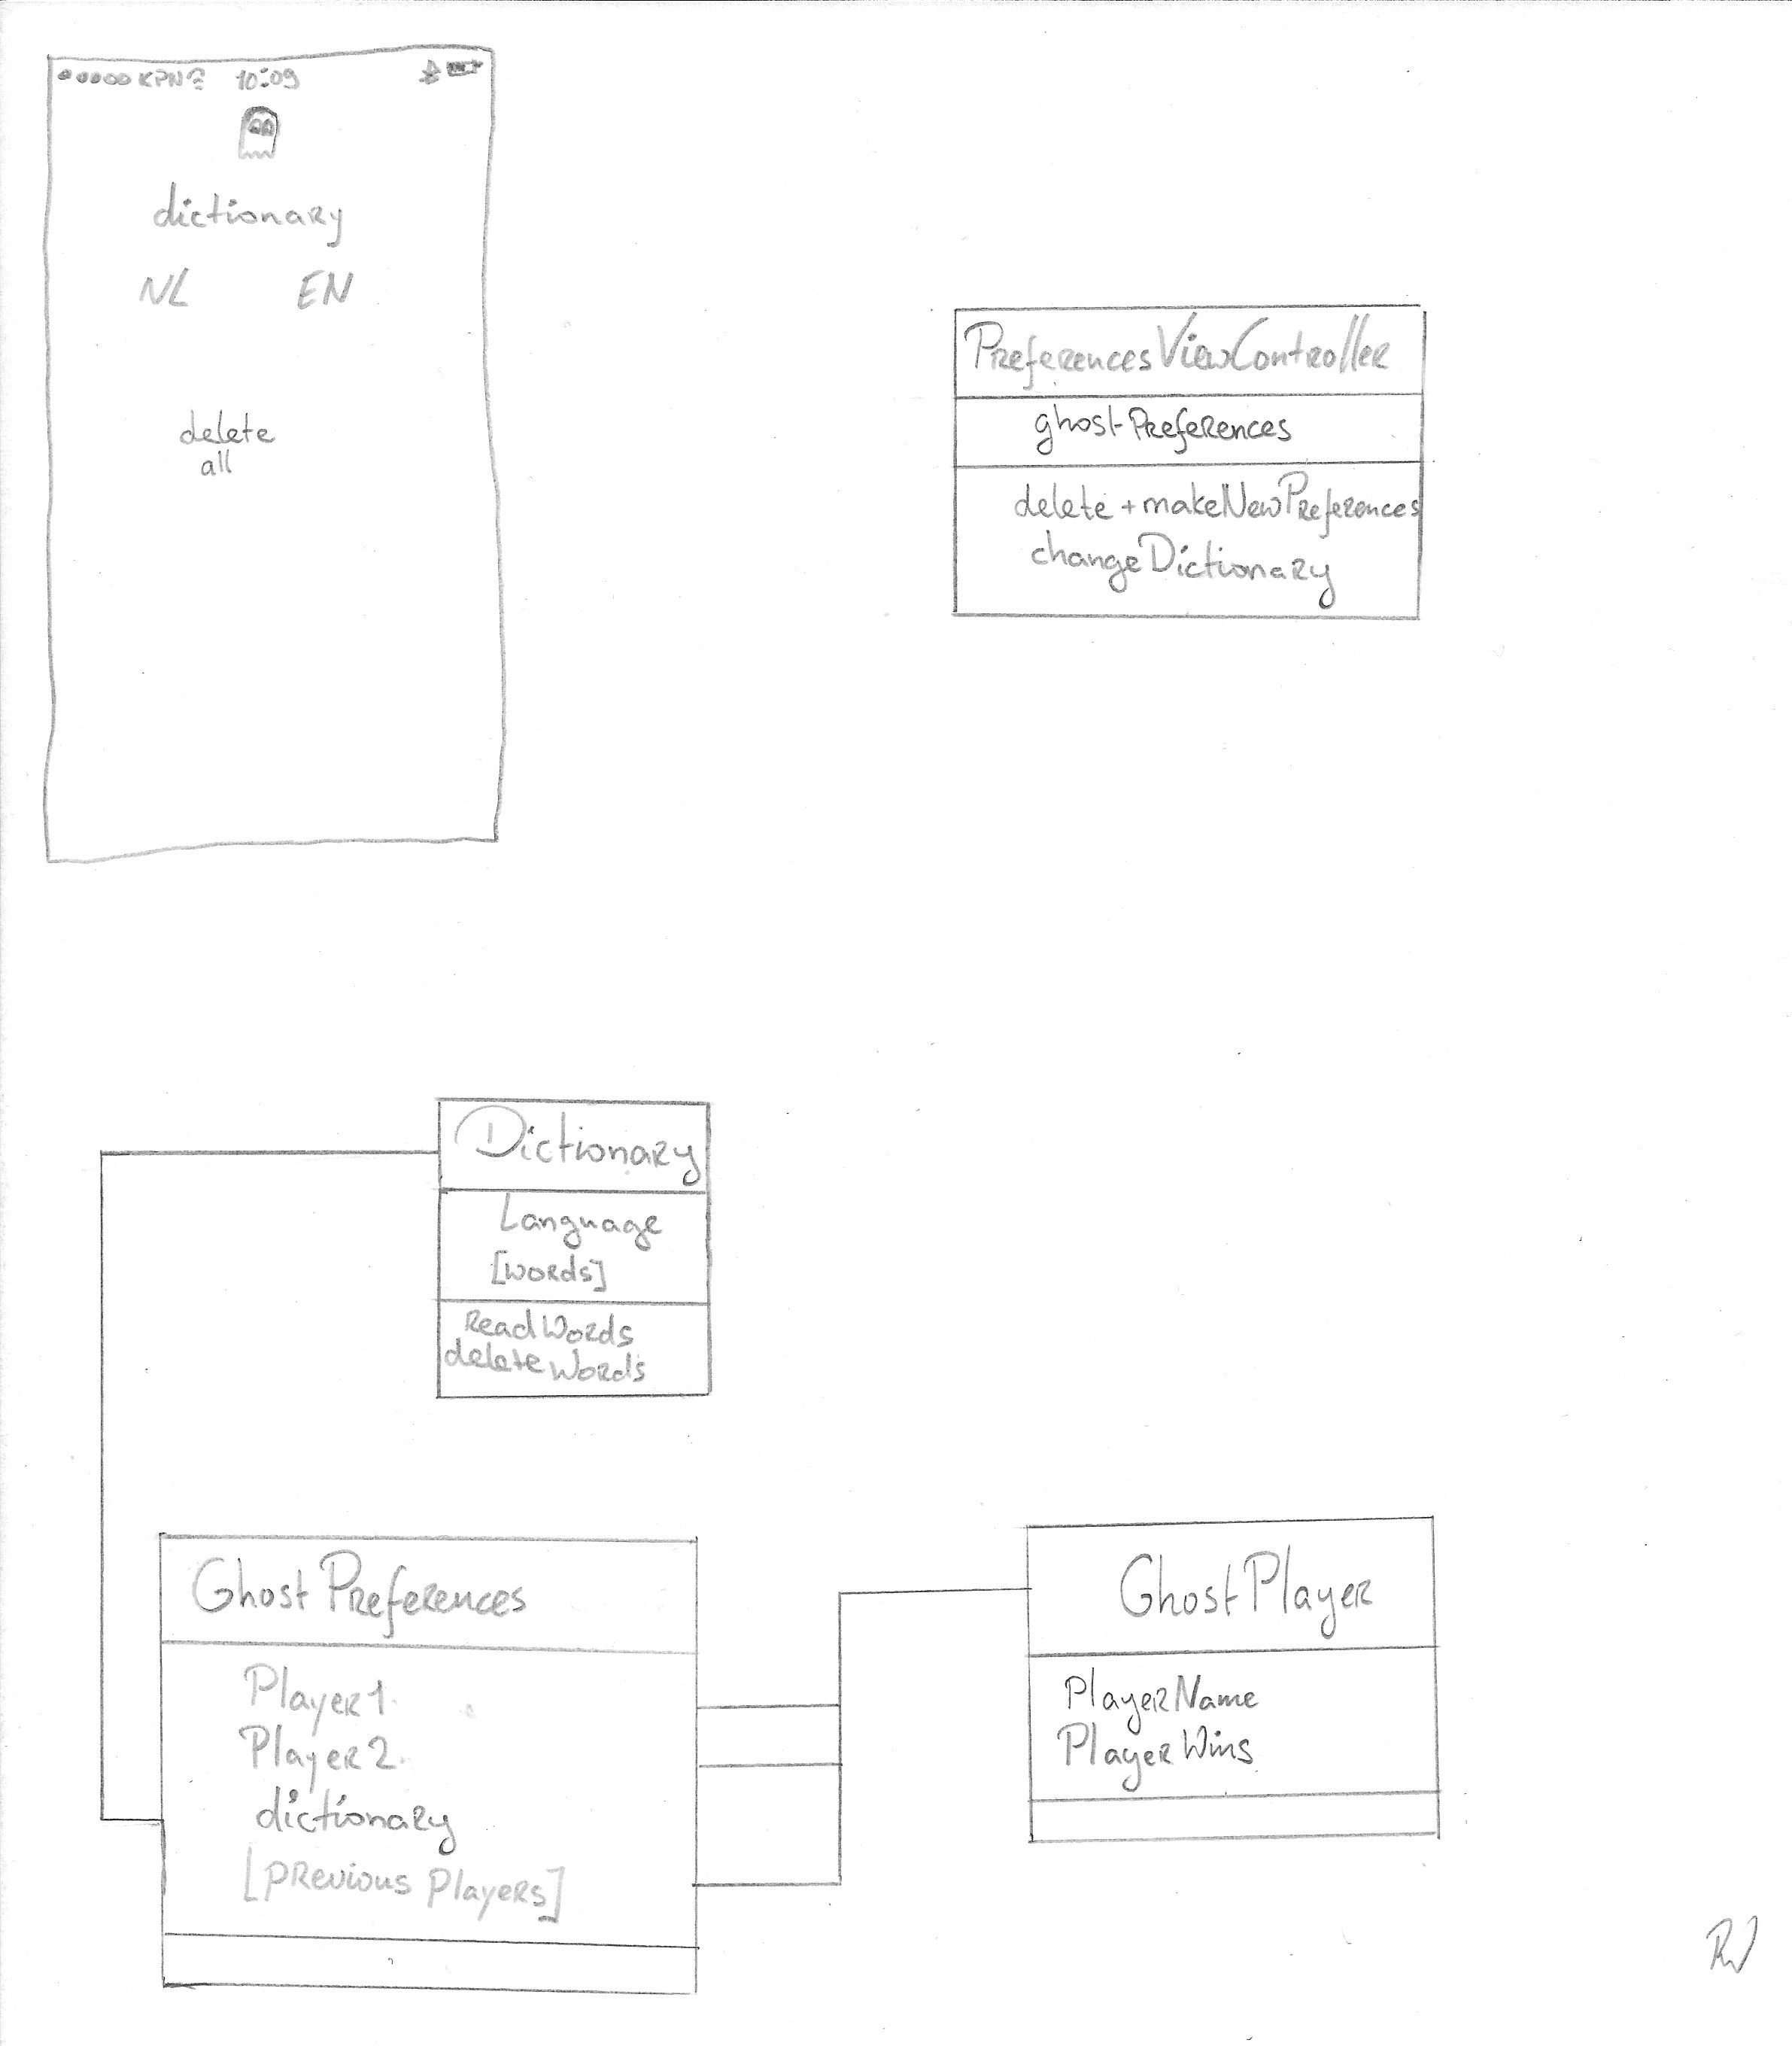 KPN 10:09
dictionary
NL EN
delete
all
PreferencesViewController
ghostPreferences
delete + makeNewPreferences
changeDictionary
Dictionary
Language
[words]
ReadWords
deleteWords
Ghost Preferences
Player1
Player2
dictionary
[previous players]
GhostPlayer
PlayerName
PlayerWins